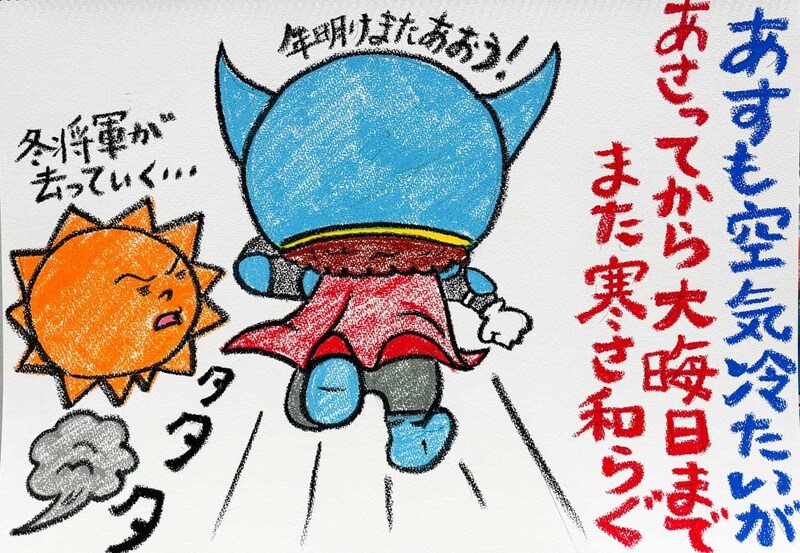 あすも空気冷たいが
あさってから大晦日まで
また寒さ和らぐ
年明けまたあおう!
冬将軍が
去っていく…
タタタタ